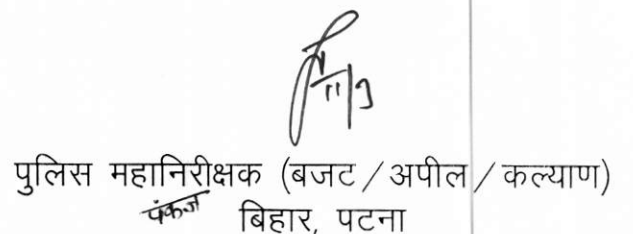 11/9
पुलिस महानिरीक्षक (बजट/अपील/कल्याण)
पंकज
बिहार, पटना